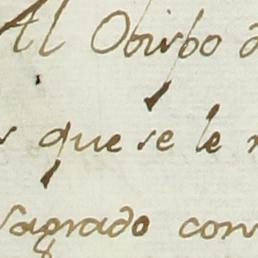 Al Obispo
que se le
sagrado con